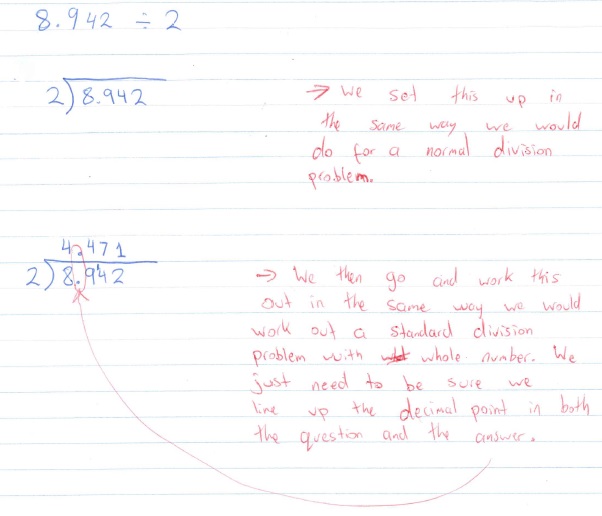 8.942 ÷ 2
2)8.942
→ We set this up in
the same way we would
do for a normal division
problem.
4.471
2)8.9¹42
→ We then go and work this
out in the same way we would
work out a standard division
problem with whole number. We
just need to be sure we
line up the decimal point in both
the question and the answer.